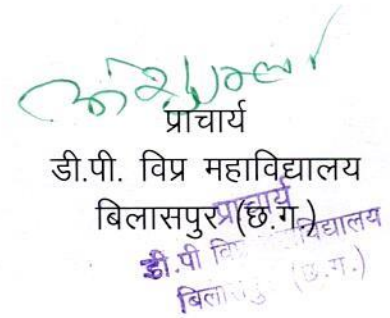 प्राचार्य
डी.पी. विप्र महाविद्यालय
बिलासपुर (छ.ग.)
प्राचार्य
डी.पी विप्र महाविद्यालय
बिलासपुर (छ.ग.)